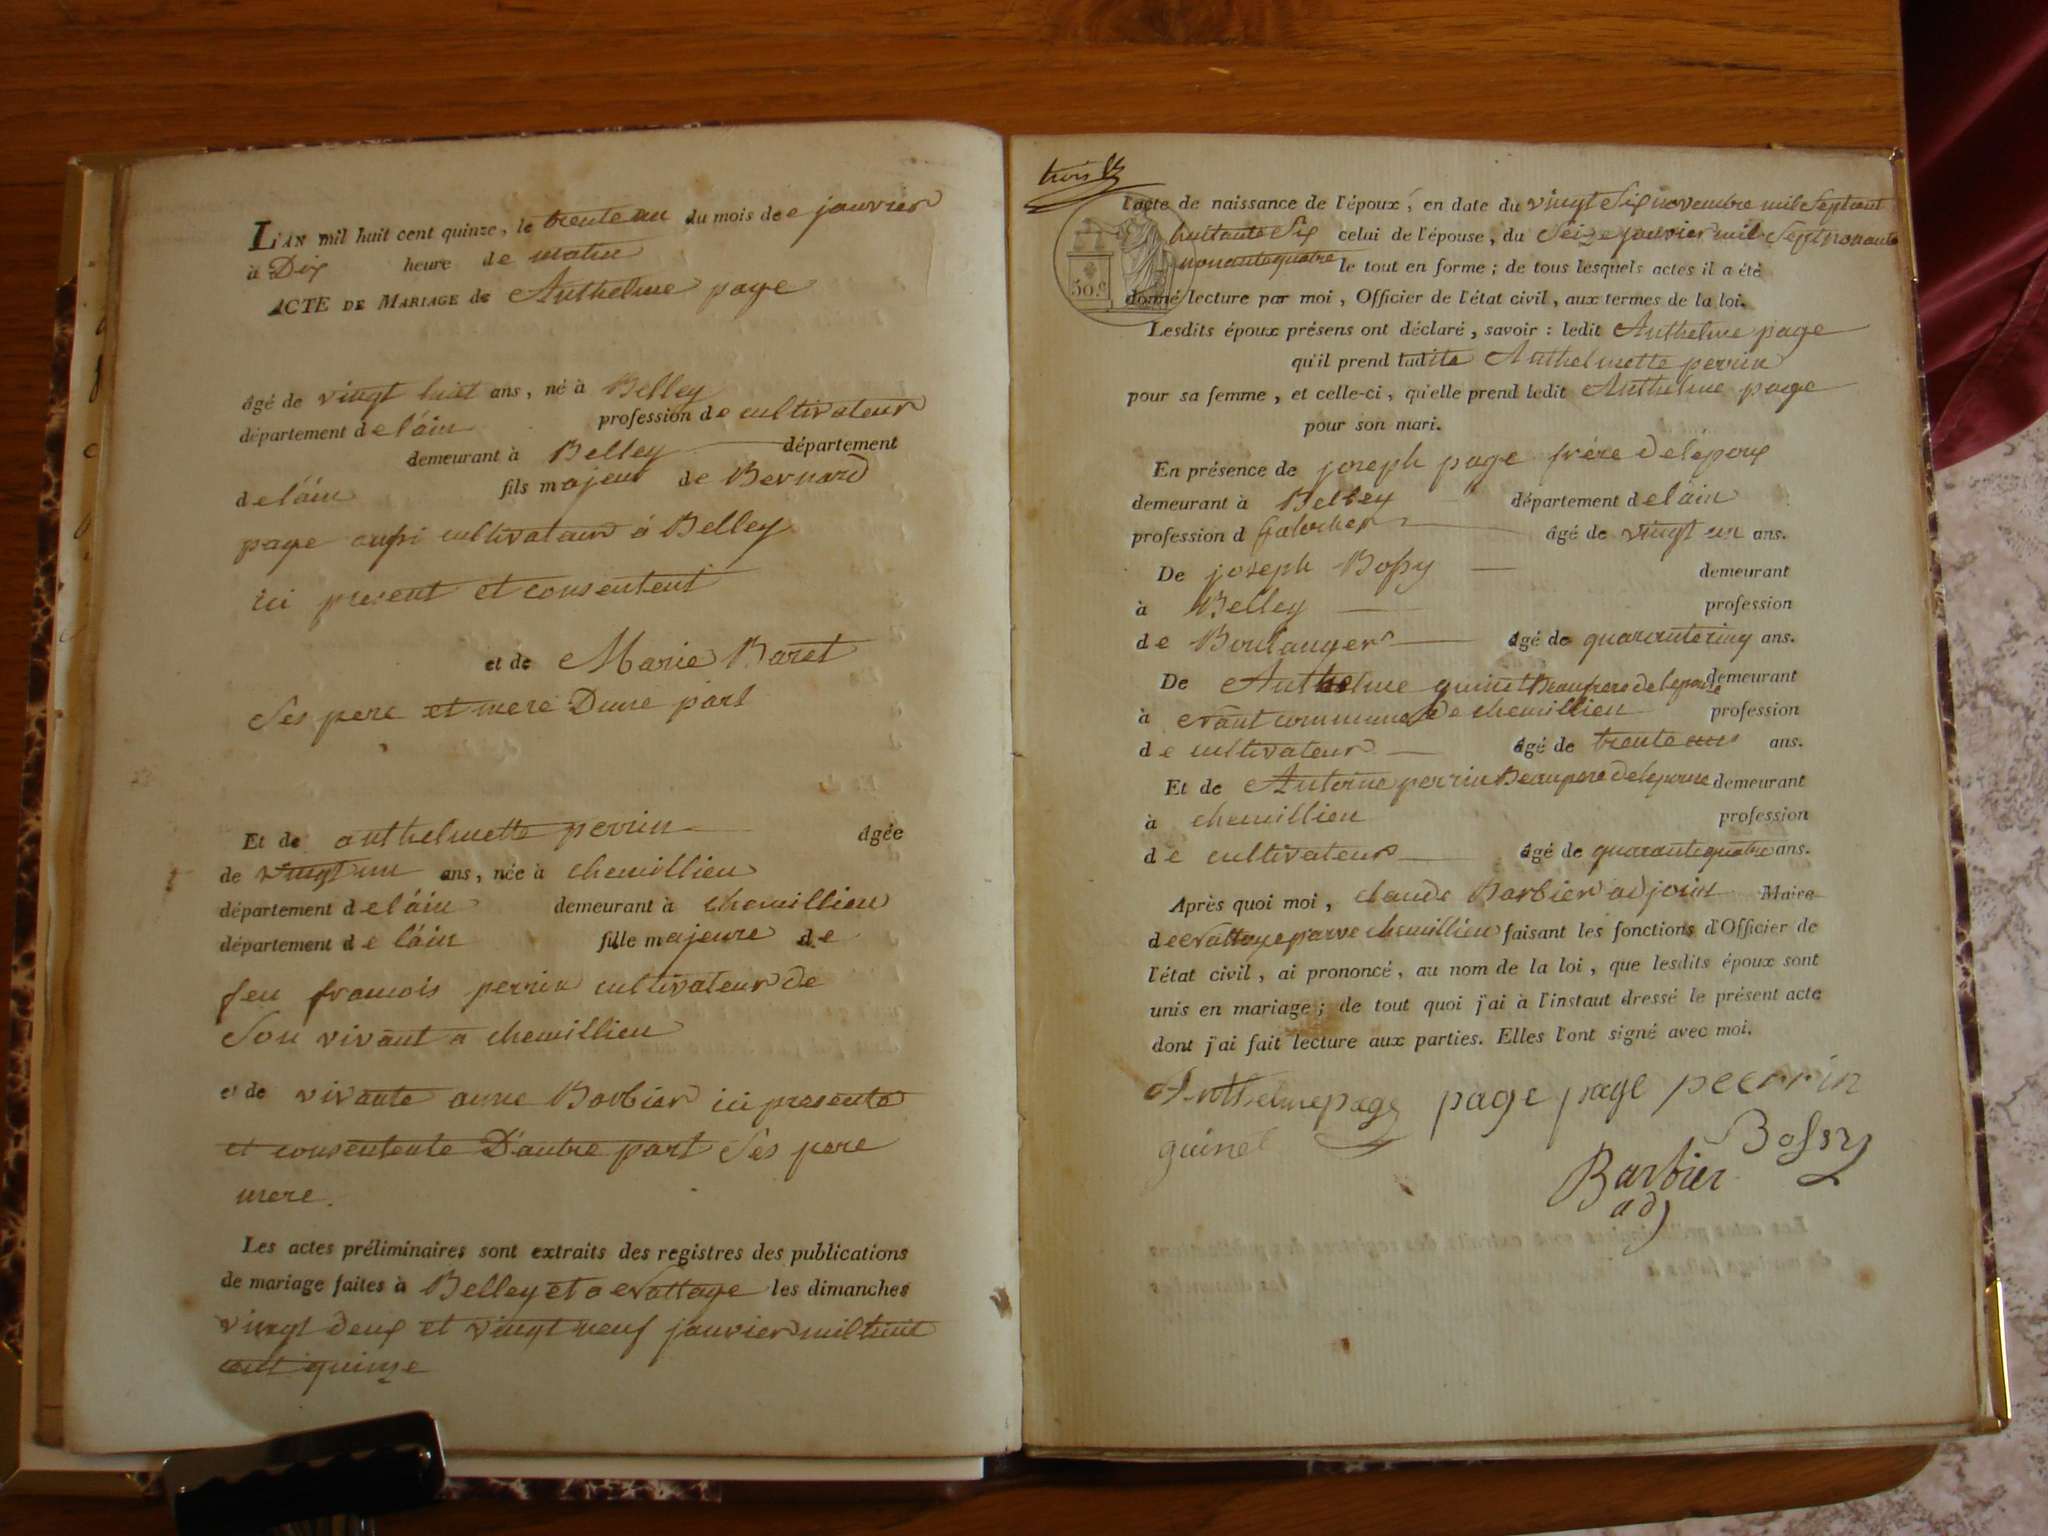 L'AN mil huit cent quinze, le trente un du mois de janvier
à Dix heure de matin
ACTE DE MARIAGE de Anthelme page
âgé de vingt huit ans, né à Belley
département de l'áin profession de cultivateur
demeurant à Belley département
de l'áin fils majeur de Bernard
page aussi cultivateur á Belley
ici present et consentent
et de Marie Baret
Ses pere et mere Dune part
Et de anthelmette perrin âgée
de vingt un ans, née à chemillieu
département de l'áin demeurant à chemillieu
département de l'áin fille majeure de
feu francois perrin cultivateur de
Son vivant a chemillieu
et de vivante anne Barbier ici presente
et consentente D'autre part Ses pere
mere.
Les actes préliminaires sont extraits des registres des publications
de mariage faites à Belley et a evattage les dimanches
vingt deux et vingt neuf janvier mil huit
cent quinze
trois
l'acte de naissance de l'époux, en date du vingt Six novembre mil Sept cent
huitante Six celui de l'épouse, du Seize janvier mil Sept nonante
nonante quatre le tout en forme ; de tous lesquels actes il a été
50.c
donné lecture par moi, Officier de l'état civil, aux termes de la loi.
Lesdits époux présens ont déclaré, savoir : ledit Anthelme page
qu'il prend ladite Anthelmette perrin
pour sa femme, et celle-ci, qu'elle prend ledit Anthelme page
pour son mari.
En présence de joseph page frére de lépoux
demeurant à Belley département de láin
profession d âgé de vingt un ans.
De joseph Bossy demeurant
à Belley profession
de Boulanger âgé de quarante cinq ans.
De Anthelme guinet Beaufrere de lepouse demeurant
à commune de chemillieu profession
de cultivateur âgé de trente ans.
Et de Antoine perrin Beaupere de lepouse demeurant
à chemillieu profession
de cultivateur âgé de quarante quatre ans.
Après quoi moi, claude Barbier adjoint Maire
de evattage parve chemillieu faisant les fonctions d'Officier de
l'état civil, ai prononcé, au nom de la loi, que lesdits époux sont
unis en mariage ; de tout quoi j'ai à l'instant dressé le présent acte
dont j'ai fait lecture aux parties. Elles l'ont signé avec moi.
Anthelme page page page peerrin
guinet Bossy
Barbier
adj